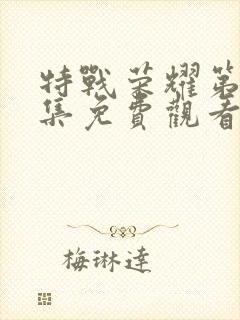 特戰荣耀第
集免費觀看
梅琳達